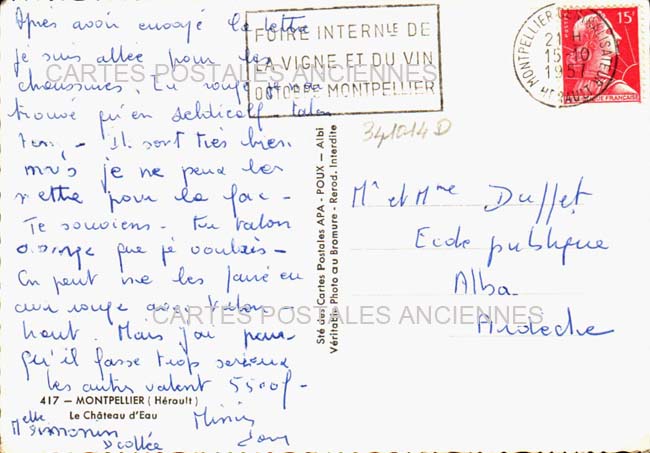 Après avoir envoyé la lettre
je suis allée pour les
chaussures. En rouge je n'ai
trouvé qu'en
Ils sont très bien
mais je ne peux les
mettre pour la fac -
Te souviens - Tu
que je voulais -
On peut me les faire en
rouge avec talon
haut. Mais j'ai peur
qu'il fasse trop sérieux
les autres valent 5500f -
417 - MONTPELLIER (Hérault)
Le Château d'Eau
Melle
FOIRE INTERNLE DE
LA VIGNE ET DU VIN
OCTOBRE MONTPELLIER
MONTPELLIER
21 H
15-10
1957
HERAULT
15F
POSTES
FRANÇAISE
341014D
Mr et Mme Duffet
Ecole publique
Alba
Ardèche
Sté des Cartes Postales APA - POUX - Albi
Véritable Photo au Bromure - Reprod. Interdite
CARTES POSTALES ANCIENNES
CARTES POSTALES ANCIENNES